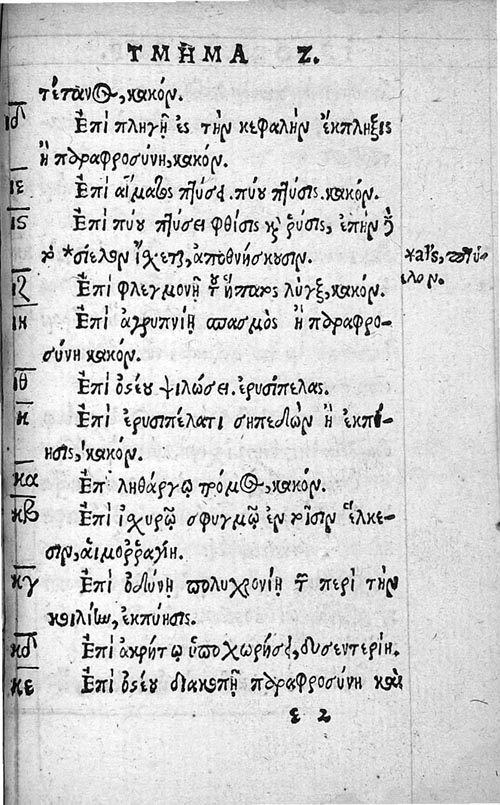 ΤΜΗΜΑ Ζ.
τέτανος, κακόν.
ιδ Ἐπὶ πληγῇ ἐς τὴν κεφαλὴν ἔκπληξις
ἢ παραφροσύνη, κακόν.
ιε Ἐπὶ αἵματος πτύσει πύου πτύσις. κακόν.
ις Ἐπὶ πύου πτύσει φθίσις καὶ ῥύσις, ἐπὴν
σίελον ἴσχεται, ἀποθνήσκουσιν.
ιζ Ἐπὶ φλεγμονῇ τοῦ ἥπατος λύγξ, κακόν.
ιη Ἐπὶ ἀγρυπνίῃ σπασμὸς ἢ παραφρο-
σύνη κακόν.
ιθ Ἐπὶ ὀστέου ψιλώσει. ἐρυσίπελας.
κ Ἐπὶ ἐρυσιπέλατι σηπεδὼν ἢ ἐκπύ-
ησις, κακόν.
κα Ἐπὶ ληθάργῳ τρόμος, κακόν.
κβ Ἐπὶ ἰσχυρῷ σφυγμῷ ἐν τοῖσιν ἕλκε-
σιν, αἱμοῤῥαγίη.
κγ Ἐπὶ ὀδύνῃ πολυχρονίῃ τῶν περὶ τὴν
κοιλίην, ἐκπύησις.
κδ Ἐπὶ ἀκρήτῳ ὑποχωρήσει, δυσεντερίη.
κε Ἐπὶ ὀστέου διακοπῇ παραφροσύνη καὶ
ε 2